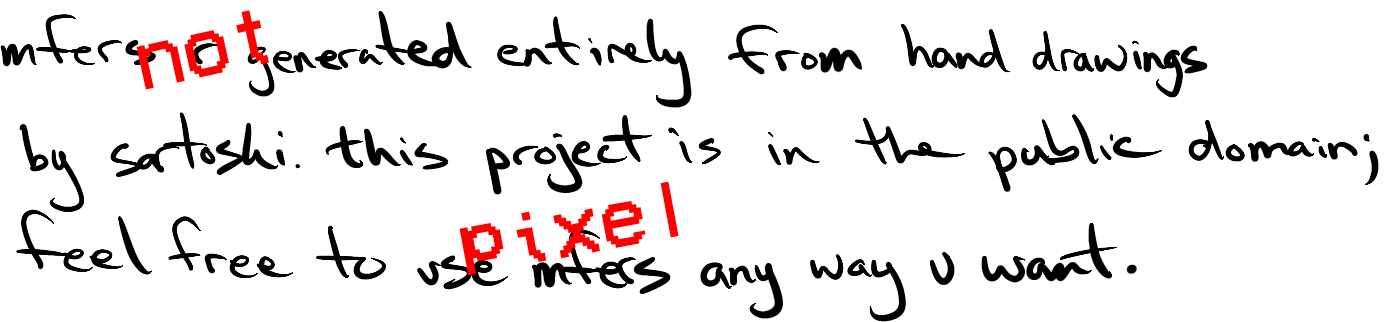 mfers r not generated entirely from hand drawings
by sartoshi. this project is in the public domain;
feel free to use pixel mfers any way u want.